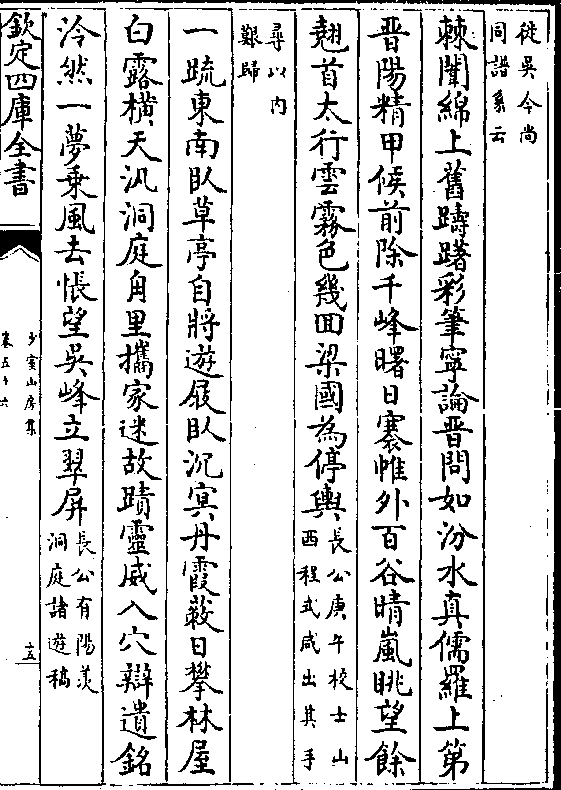 徙吳今尚
同譜系云
棘闈綿上舊躊躇彩筆寧論晉問如汾水真儒羅上第
晉陽精甲候前除千峰曙日褰帷外百谷晴嵐眺望餘
翹首太行雲霧色幾回梁國為停輿
長公庚午校士山
西程式咸出其手
尋以内
艱歸
一䟽東南臥草亭自將遊屐臥沉冥丹霞蔽日攀林屋
白露橫天汎洞庭甪里攜家迷故蹟靈威入穴辯遺銘
泠然一夢乘風去悵望吳峰立翠屏
長公有陽羨
洞庭諸遊稿
欽定四庫全書
少室山房集
卷五十六